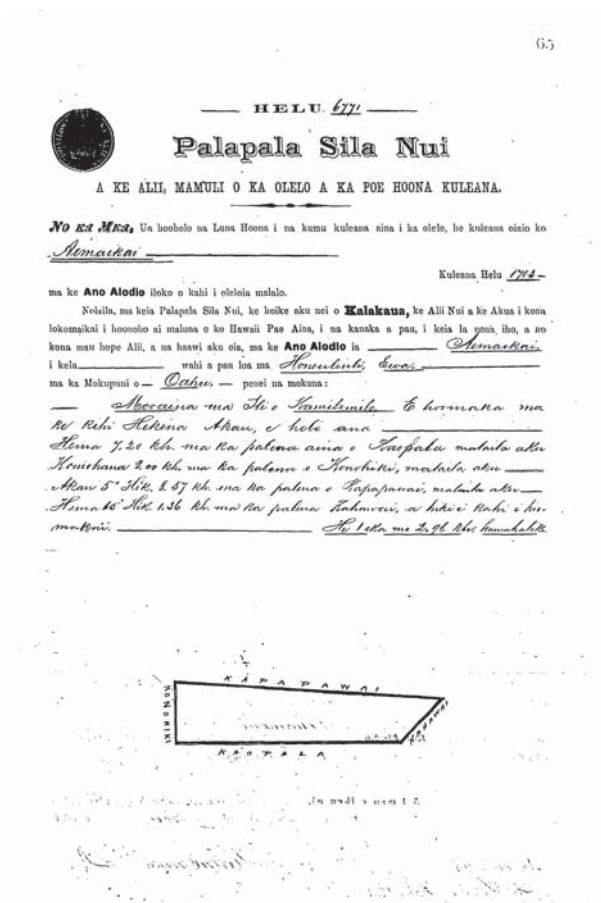 65
HELU 6771
Palapala Sila Nui
A KE ALII, MAMULI O KA OLELO A KA POE HOONA KULEANA.
NO KA MEA, Ua hooholo na Luna Hoona i na kumu kuleana aina i ka olelo, he kuleana oiaio ko
Aemaikai
Kuleana Helu 1702
ma ke Ano Alodio iloko o kahi i oleloia malalo.
Nolaila, ma keia Palapala Sila Nui, ke hoike aku nei o Kalakaua, ke Alii Nui a ke Akua i kona
lokomaikai i hoonoho ai maluna o ko Hawaii Pae Aina, i na kanaka a pau, i keia la ponoi iho, a no
kona mau hope Alii, a ua haawi aku oia, ma ke Ano Alodio ia Aemaikai,
i kela wahi a pau loa ma Honouliuli, Ewa,
ma ka Mokupuni o Oahu, penei na mokuna:
Mooaina ma Ili o Kamilomilo E hoomaka ma
ke kihi Hikina Akau, e holo ana
Hema 7.20 kh. ma ka palena aina o Kaopala malaila aku
Komohana 2.00 kh. ma ka palena o Konohiki, malaila aku
Akau 5° Hik. 8.57 kh. ma ka palena o Kapapawai, malaila aku
Hema 65° Hik. 1.36 kh. ma ka palena, a hiki i kahi i hoo-
makaii. He 1 eka me 2.96 kh.
KAPAPAWAI
KONOHIKI
KAOPALA